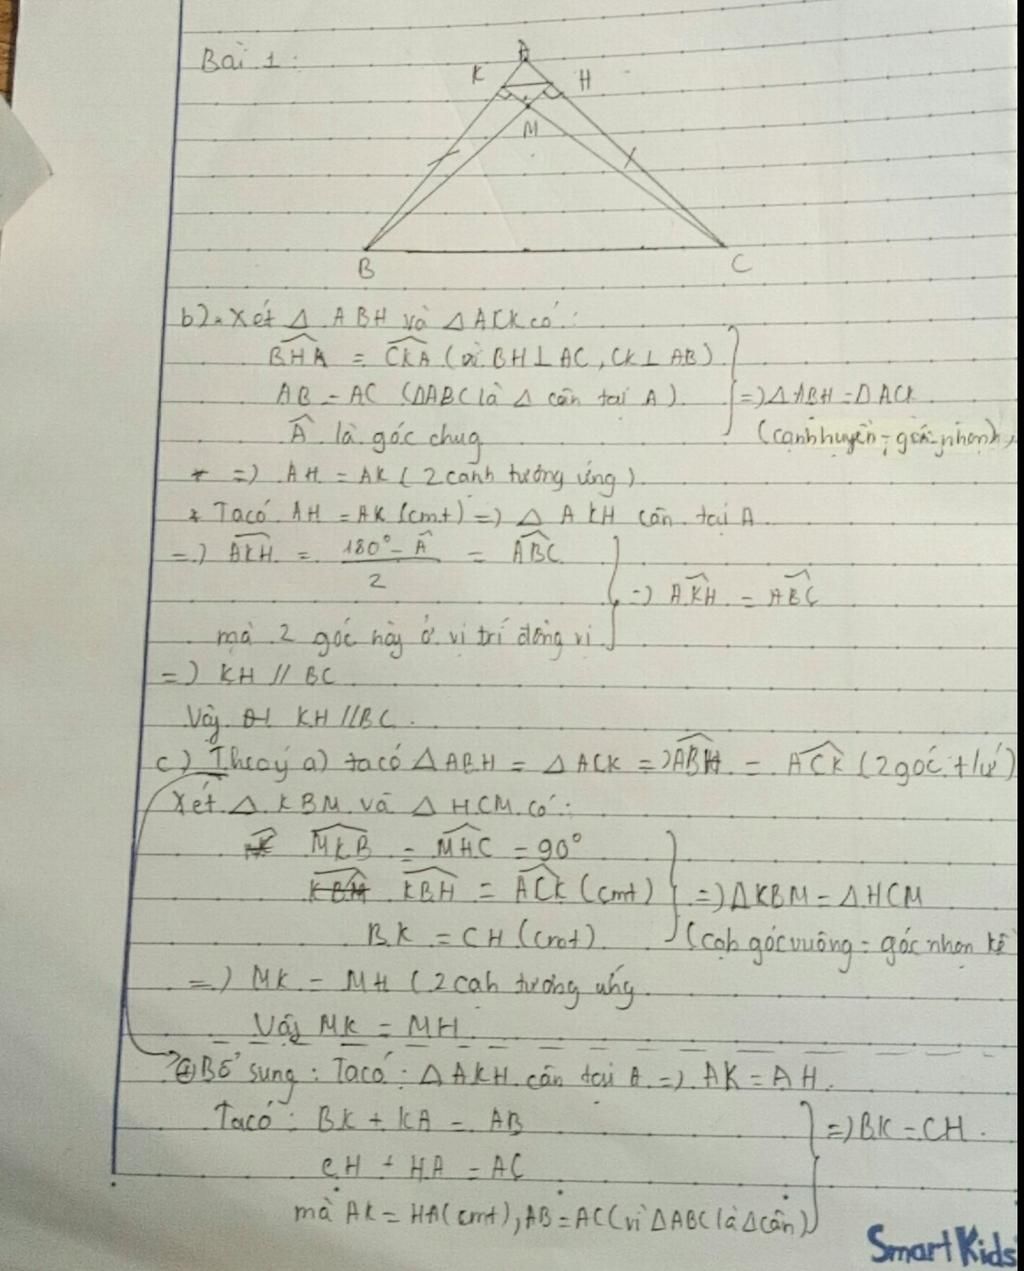 Bài 1:
A
K H
M
B C
b). Xét Δ ABH và Δ ACK có:
BHA = CKA (vì BH ⊥ AC, CK ⊥ AB)
AB = AC (ΔABC là Δ cân tại A)
=> Δ ABH = Δ ACK
A là góc chug
(cạnh huyền - góc nhọn)
* => AH = AK (2 cạnh tương ứng).
* Ta có AH = AK (cmt) => Δ AKH cân tại A
=> AKH = (180° - A)/2 = ABC
=> AKH = ABC
mà 2 góc này ở vị trí đồng vị
=> KH // BC
Vậy KH // BC.
c) Theo ý a) ta có Δ ABH = Δ ACK => ABH = ACK (2 góc t/ứ)
Xét Δ KBM và Δ HCM có:
MKB = MHC = 90°
KBH = ACK (cmt)
=> Δ KBM = Δ HCM
BK = CH (cmt)
(cạh góc vuông - góc nhọn kề
=> MK = MH (2 cạh tương ứng
Vậy MK = MH
Bổ sung: Ta có: Δ AKH cân tại A => AK = AH.
Ta có: BK + KA = AB
=> BK = CH.
CH + HA = AC
mà AK = HA (cmt), AB = AC (vì ΔABC là Δ cân)
SmartKids